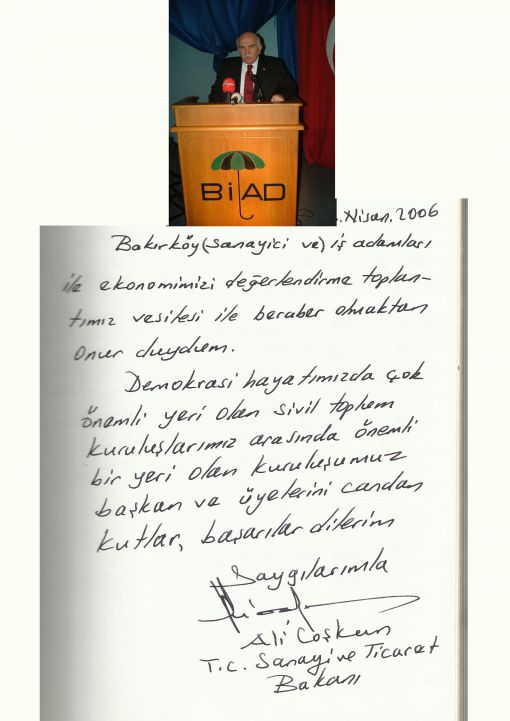 BİAD
.Nisan.2006
Bakırköy (sanayici ve) iş adamları
ile ekonomimizi değerlendirme toplan-
tımız vesilesi ile beraber olmaktan
onur duydum.
Demokrasi hayatımızda çok
önemli yeri olan sivil toplum
kuruluşlarımız arasında önemli
bir yeri olan kuruluşumuz
başkan ve üyelerini candan
kutlar, başarılar dilerim
Saygılarımla
Ali Coşkun
T.C. Sanayi ve Ticaret
Bakanı